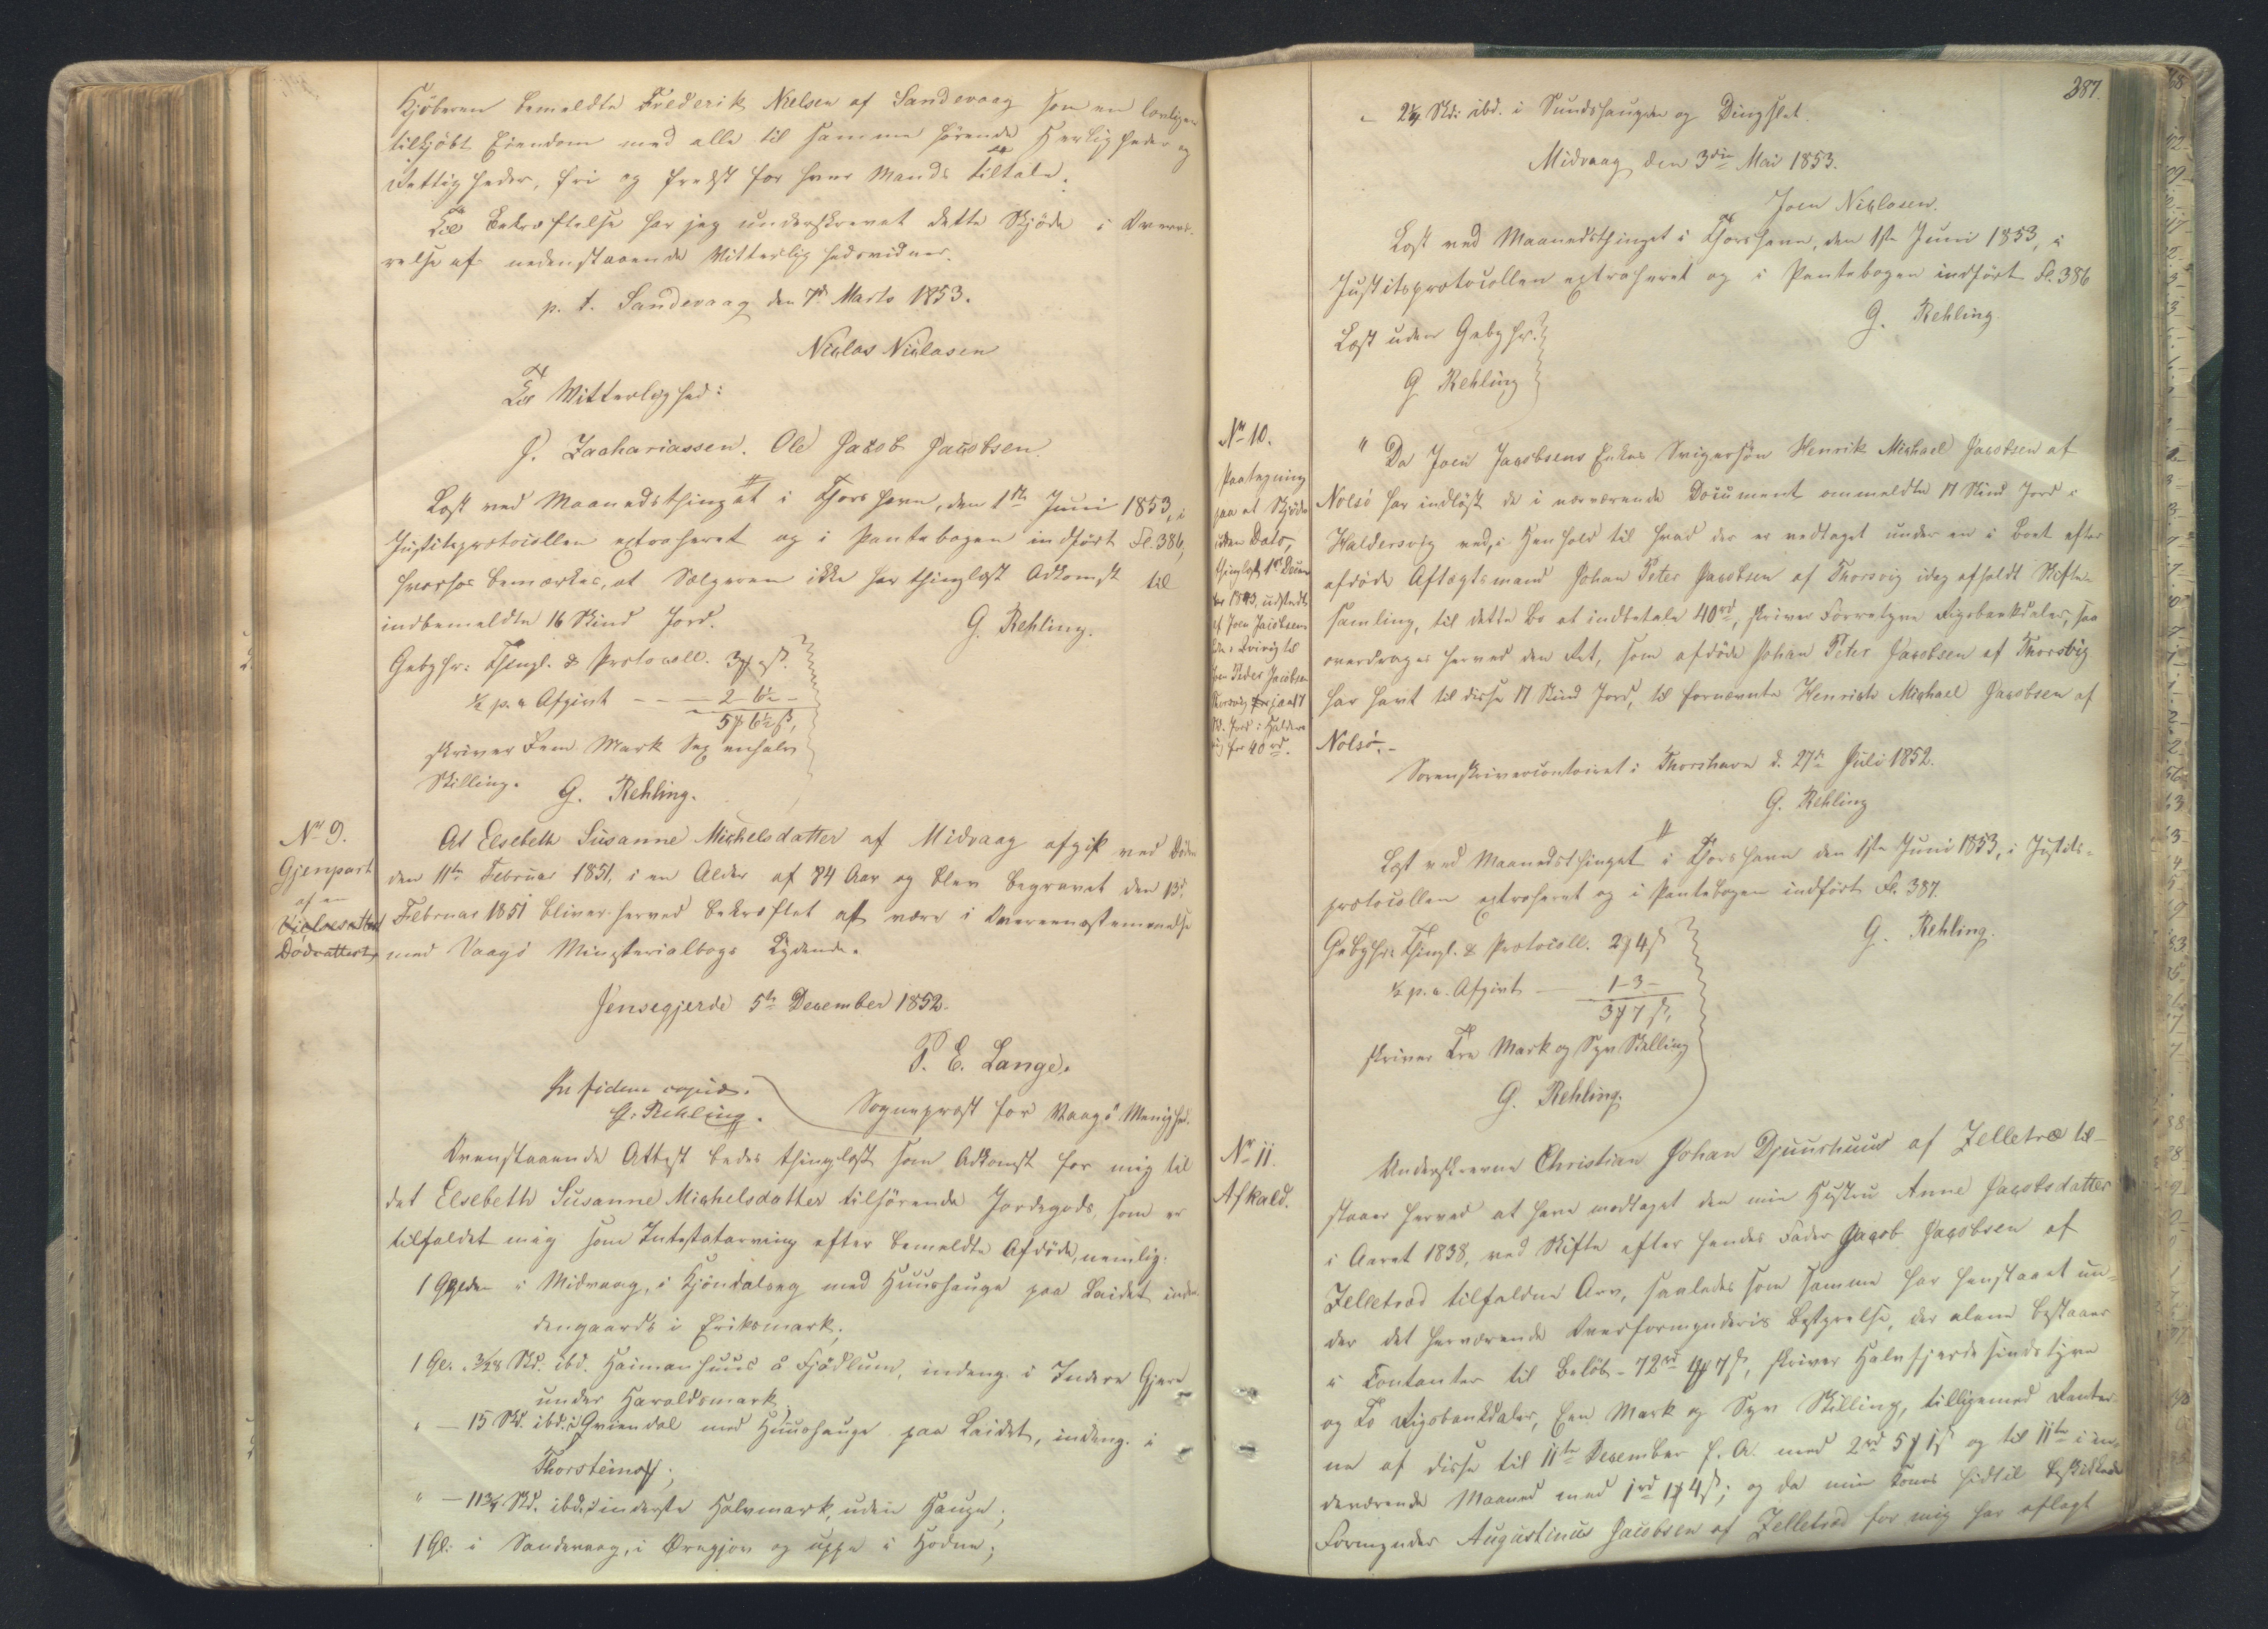 Kjöberen bemeldte Frederik Nielsen af Sandevaag som en lovligen
tilkjöbt Eiendom med alle til samme hörende Herligheder og
Rettigheder, fri og frelst for hver Mands Tiltale.
Til Bekræftelse har jeg underskrevet dette Skjöde i Overvæ-
relse af nedenstaaende Vitterlighedsvidner.
p. t. Sandevaag den 7d Marts 1853.
Niclas Niclasen
Til Vitterlighed:
J. Zachariassen. Ole Jacob Jacobsen.
Læst ved Maanedsthinget i Thorshavn, den 1ste Juni 1853, i
Justitsprotocollen extraheret og i Pantebogen indfört Fl. 386,
hvorhos bemærkes, at Sælgeren ikke har thinglæst Adkomst til
indbemeldte 16 Skind Jord.
G. Rehling.
Gebyhr: Thingl. & Protocoll. 3 ß.
½ p. c. Afgivt - - - 2 - 6½ -
5 6½ ß,
skriver Fem Mark Sex enhalv
Skilling. G. Rehling.
No 9.
Gjenpart
af en
Dödsattest,
At Elsebeth Susanne Michelsdatter af Midvaag afgik ved Döden
den 11te Februar 1851, i en Alder af 84 Aar og blev begravet den 15.
Februar 1851 bliver herved bekræftet at være i Overeensstemmelse
med Vaagö Ministerialbogs Lydende.
Jensegjerde 5te December 1852.
P. E. Lange.
Sognepræst for Vaagö Menighed.
In fidem copiæ.
G. Rehling.
Ovenstaaende Attest bedes thinglæst som Adkomst for mig til
det Elsebeth Susanne Michelsdatter tilhörende Jordegods, som er
tilfaldet mig som Intestatarving efter bemeldte Afdöde, nemlig:
1 Gylden i Midvaag, i Kjöndalseg med Huushauge paa Leidet, inden-
dengaards i Eriksmark;
1 Gl. 3/28 Skd. ibd. Heimanhuus å Fjödlum, indeng. i Indere Gjere
under Haraldsmark
" — 15 Skd. ibd. i Qviendal med Huushauge paa Leidet, indeng. i
Thorsteins;
" — 11¾ Skd. ibd. i inderste Halvmark, uden Hauge;
1 Gl. i Sandevaag, i Öregjov og uppe i Hodne;
387.
" 2¼ Skd. ibd. i Sundshaugen og Dingflet.
Midvaag den 3die Mai 1853.
Joen Niclasen.
Læst ved Maanedsthinget i Thorshavn, den 1ste Juni 1853, i
Justitsprotocollen extraheret og i Pantebogen indfört Fl. 386
G. Rehling.
Læst uden Gebyhr.
G Rehling
No 10.
Paategning
paa et Skjöde
uden Dato,
thinglæst 1ste
1843, udstedt
af Joen Jacobsens
til
Peder Jacobsen
Thorsvig 17
Sk. Jord i Halders
vig for 40 rd.
" Da Joen Jacobsens Enkes Svigersön Henrik Michael Jacobsen af
Nolsö har indlöst de i nærværende Document ommeldte 17 Skind Jord i
Haldersvig ved, i Henhold til hvad der er vedtaget under en i Boet efter
afdöde Aftægtsmand Johan Peter Jacobsen af Thorsvig idag afholdt Skifte-
samling, til dette Bo at indbetale 40 rd, skriver Forretyve Rigsbankdaler, saa
overdrages herved den Ret, som afdöde Johan Peter Jacobsen af Thorsvig
har havt til disse 17 Skind Jord, til fornævnte Henrich Michael Jacobsen af
Nolsö. -
Sorenskrivercontoiret i Thorshavn d. 27de Juli 1852.
G. Rehling
Læst ved Maanedsthinget i Thorshavn den 1ste Juni 1853, i Justits-
protocollen extraheret og i Pantebogen indfört Fl. 387.
G. Rehling.
Gebyhr: Thingl. & Protocoll. 2 4 ß
½ p. c. Afgivt — 1 - 3 -
3 7 ß,
skriver Tre Mark og Syv Skilling
G. Rehling.
No 11.
Afkald.
Underskrevne Christian Johan Djuurhuus af Zelletræ til-
staaer herved at have modtaget den min Hustru Anne Jacobsdatter
i Aaret 1838, ved Skifte efter hendes Fader Jacob Jacobsen af
Zelletræd tilfaldne Arv, saaledes som samme har henstaaet un-
der det herværende Overformynderis Bestyrelse, der alene bestaaer
i Contanter til Beløb - 72 rd 1 7 ß, skriver Halvfjerdesindstyve
og To Rigsbankdaler, Een Mark og Syv Skilling, tilligemed Renter-
ne af disse til 11te December f. A. med 2 rd 5 1 ß og til 11te i in-
deværende Maaned med 1 rd 1 4 ß; og da min Kones hidtil beskikkede
Formynder Augustinus Jacobsen af Zelletræd for mig har aflagt